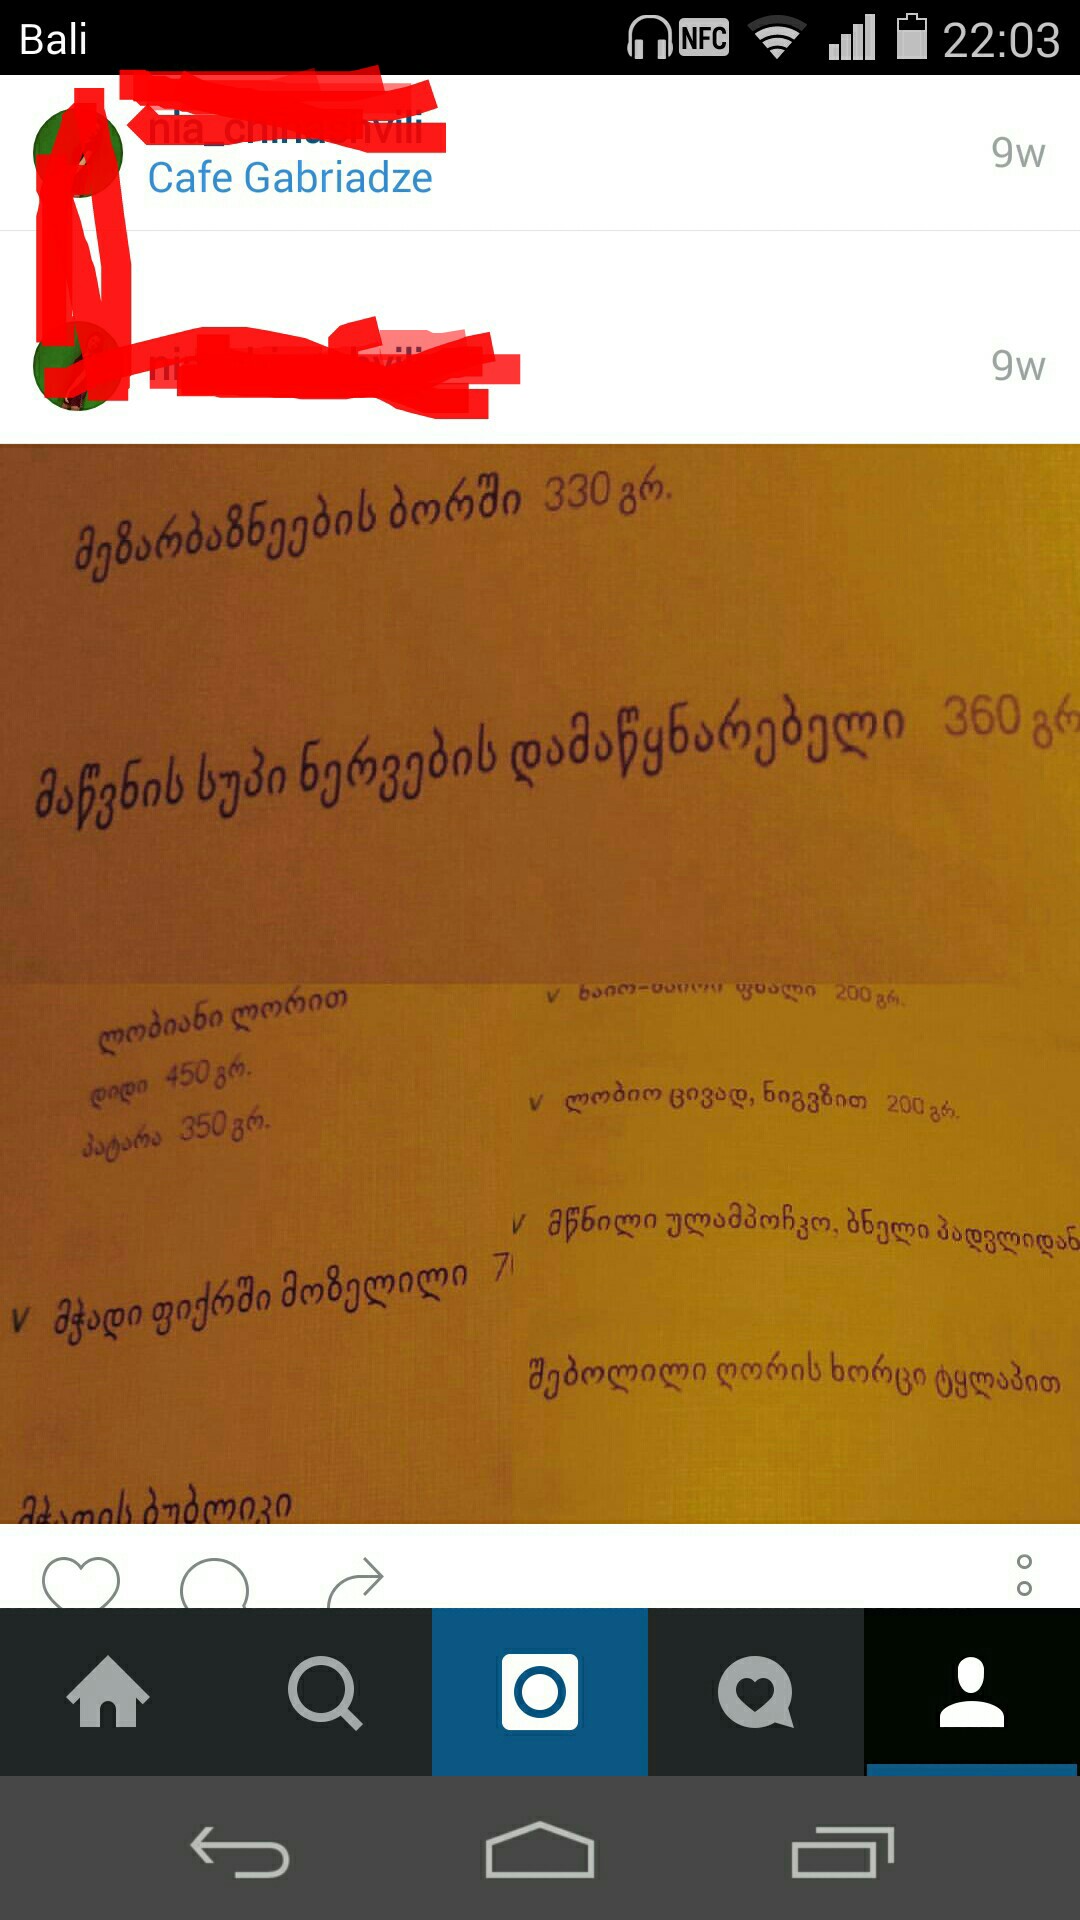 Bali
NFC
22:03
Cafe Gabriadze
9w
9w
მეზარბაზნეების ბორში 330 გრ.
მაწვნის სუპი ნერვების დამაწყნარებელი 360 გრ
ლობიანი ლორით
დიდი 450 გრ.
პატარა 350 გრ.
v მჭადი ფიქრში მოზელილი
მჭადის ბუბლიკი
v 200 გრ.
v ლობიო ცივად, ნიგვზით 200 გრ.
v მწნილი ულამპოჩკო, ბნელი პადვლიდან
შებოლილი ღორის ხორცი ტყლაპით